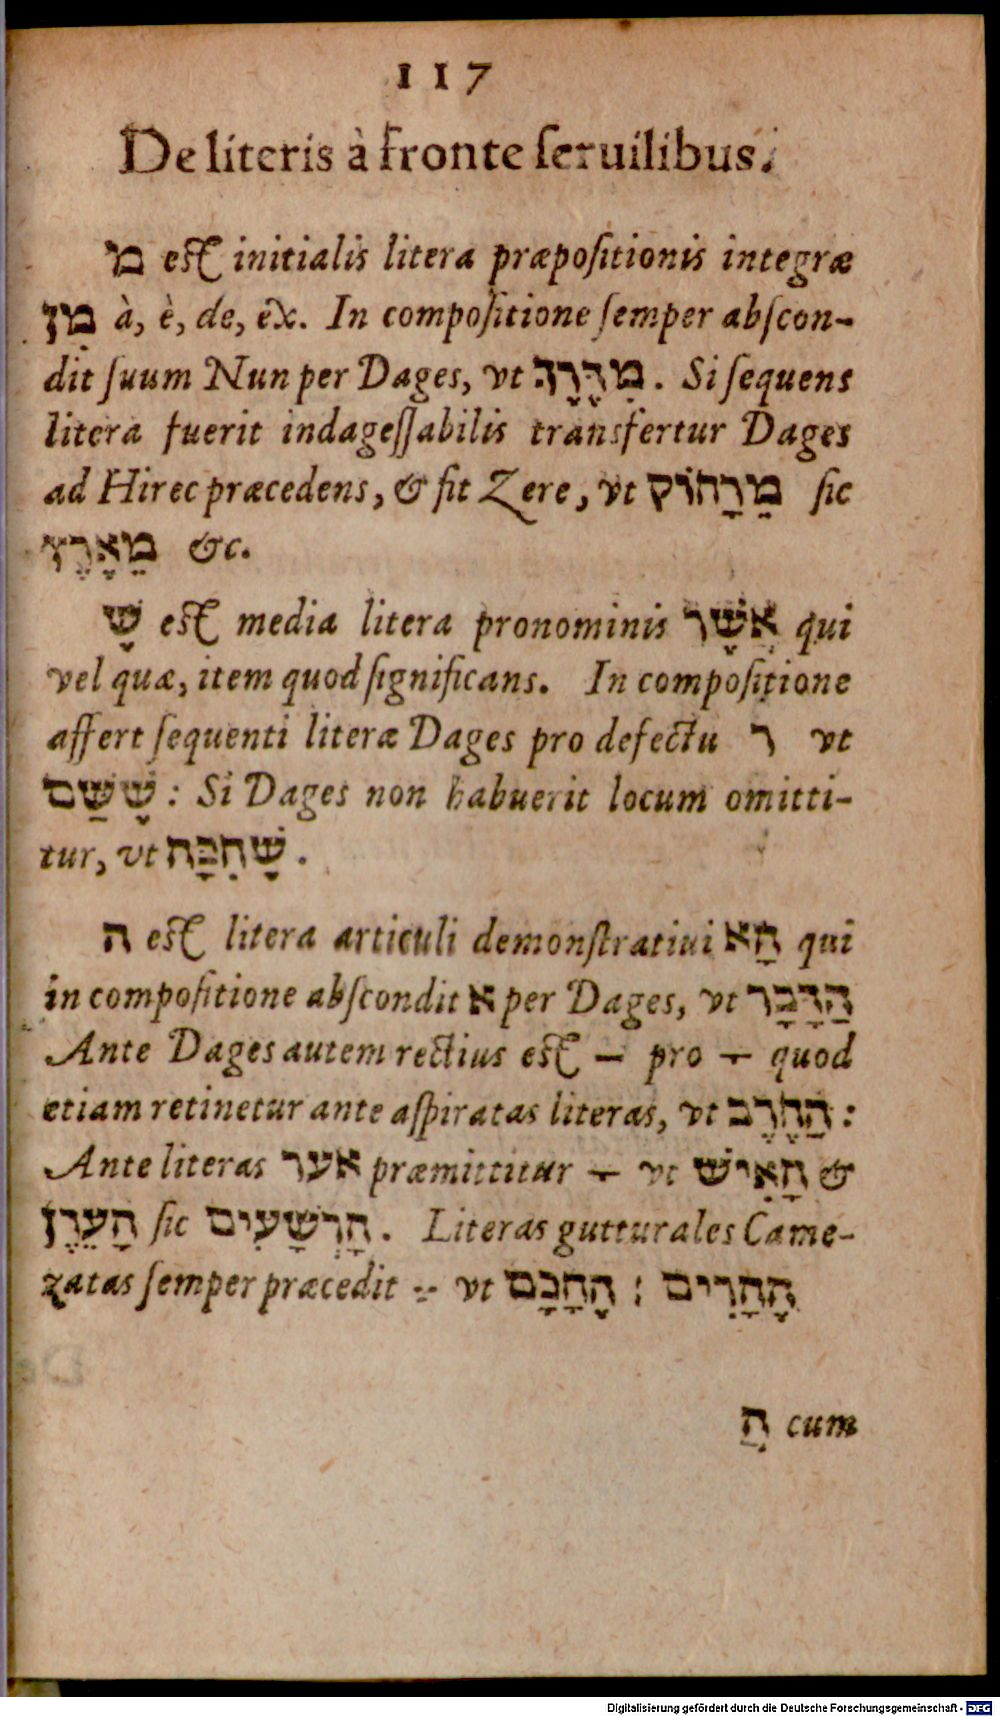 117
De literis à fronte ſeruilibus.
מ eſt initialis litera præpoſitionis integræ
מִן à, è, de, ex. In compoſitione ſemper abſcon-
dit ſuum Nun per Dages, vt מִדֶּרֶךְ. Si ſequens
litera fuerit indageſſabilis transfertur Dages
ad Hirec præcedens, & fit Zere, vt מֵרָחוֹק ſic
מֵאֶרֶץ &c.
שָׁ eſt media litera pronominis אְשָׁר qui
vel quæ, item quod ſignificans. In compoſitione
affert ſequenti literæ Dages pro defectu ר vt
שָׁשַּׁם : Si Dages non habuerit locum omitti-
tur, vt שָׁחִבָּה.
ה eſt litera articuli demonſtratiui הָא qui
in compoſitione abſcondit א per Dages, vt הַדָּבָר
Ante Dages autem rectius eſt – pro ⸆ quod
etiam retinetur ante aſpiratas literas, vt הַחֶרֶב :
Ante literas אער præmittitur ⸆ vt הָאִישׁ &
הָעֵרֶן ſic הָרְשָׁעִים. Literas gutturales Came-
zatas ſemper præcedit vt הֶחָכָם ; הֶהָרִים
הֲ cum
Digitalisierung gefördert durch die Deutsche Forschungsgemeinschaft - DFG